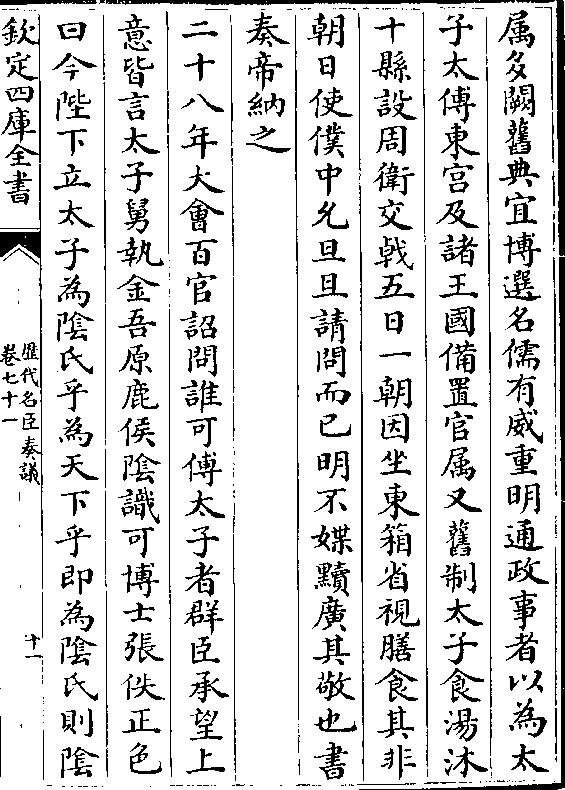 属多闕舊典宜博選名儒有威重明通政事者以為太
子太傅東宮及諸王國備置官属又舊制太子食湯沐
十縣設周衛交㦸五日一朝因坐東箱省視膳食其非
朝日使僕中允旦旦請問而已明不媟黷廣其敬也書
奏帝納之
二十八年大會百官詔問誰可傅太子者群臣承望上
意皆言太子舅執金吾原鹿侯陰識可博士張佚正色
曰今陛下立太子為陰氏乎為天下乎即為陰氏則陰
欽定四庫全書
歴代名臣奏議
卷七十一
十一